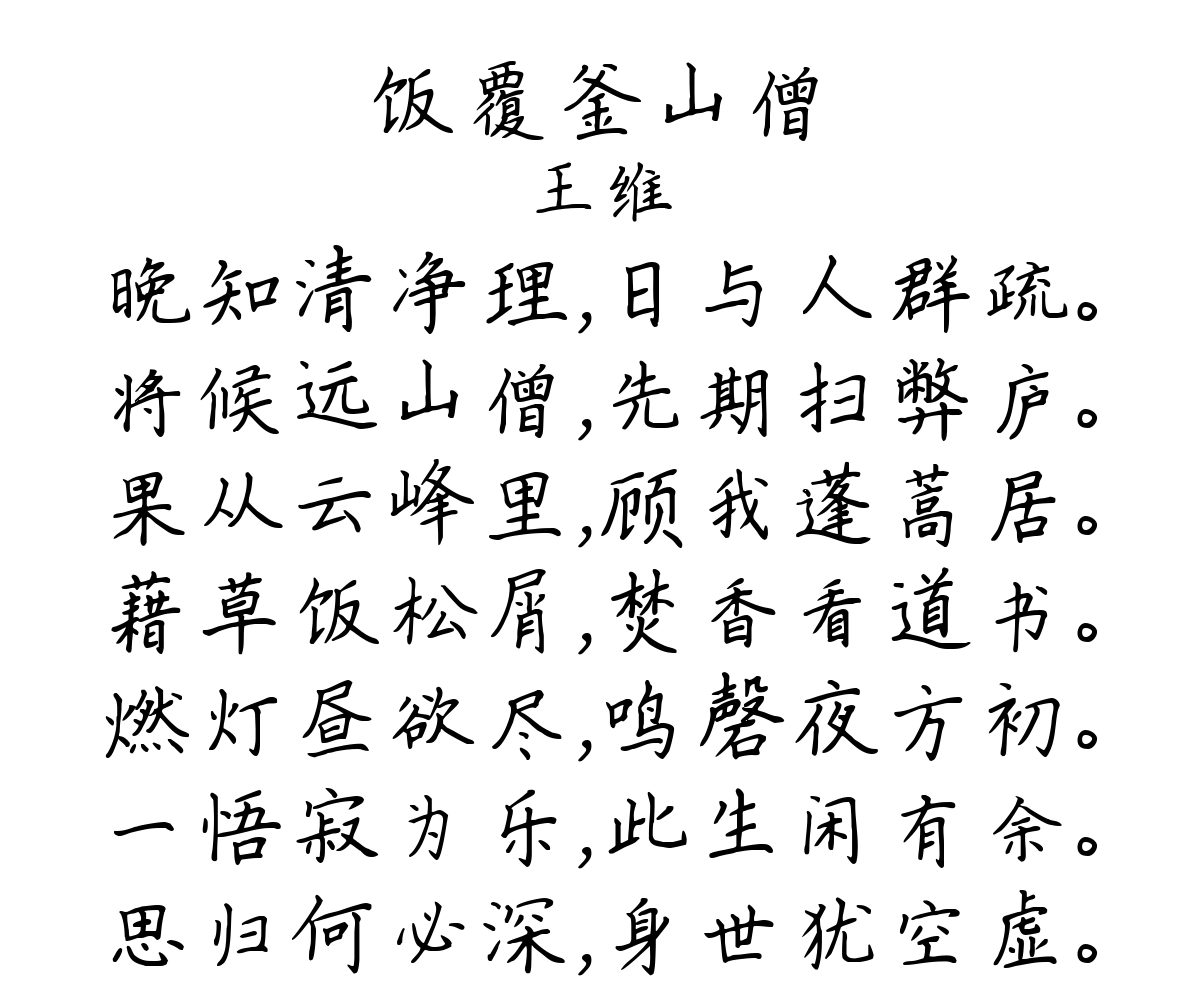 饭覆釜山僧
王维
晚知清净理,日与人群疏。
将候远山僧,先期扫弊庐。
果从云峰里,顾我蓬蒿居。
藉草饭松屑,焚香看道书。
燃灯昼欲尽,鸣磬夜方初。
一悟寂为乐,此生闲有余。
思归何必深,身世犹空虚。